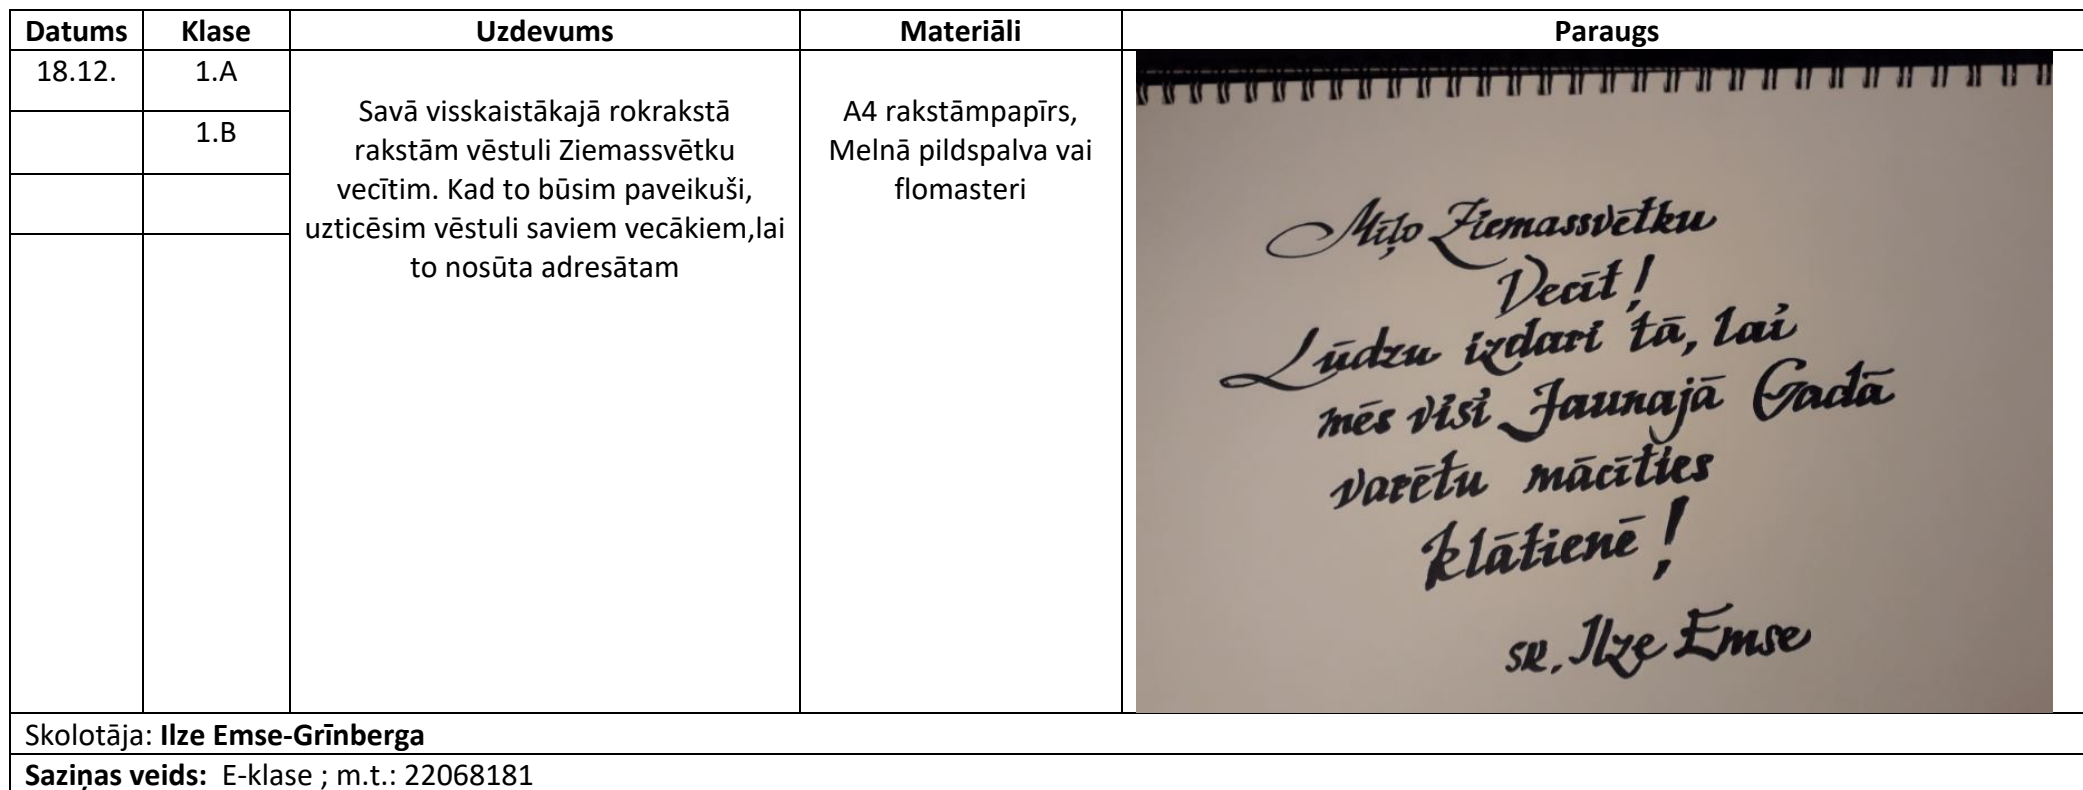 Datums Klase Uzdevums Materiāli Paraugs
18.12. 1.A
1.B
Savā visskaistākajā rokrakstā
rakstām vēstuli Ziemassvētku
vecītim. Kad to būsim paveikuši,
uzticēsim vēstuli saviem vecākiem,lai
to nosūta adresātam
A4 rakstāmpapīrs,
Melnā pildspalva vai
flomasteri
Mīļo Ziemassvētku
Vecīt!
Lūdzu izdari tā, lai
mēs visi Jaunajā Gadā
varētu mācīties
klātienē!
sk. Ilze Emse
Skolotāja: Ilze Emse-Grīnberga
Saziņas veids: E-klase ; m.t.: 22068181